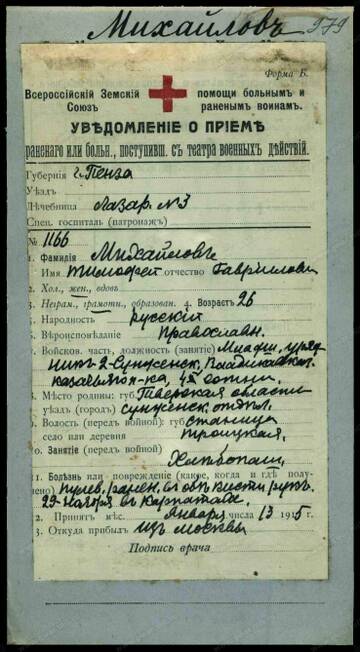 Михайловъ 979
Форма Б.
Всероссійскій Земскій Союзъ
помощи больнымъ и раненымъ воинамъ.
УВѢДОМЛЕНІЕ О ПРІЕМѢ
раненаго или больн., поступивш. съ театра военныхъ дѣйствій.
Губернія г. Пенза
Уѣздъ
Лечебница Лазар. №3
Спец. госпиталь (патронажъ)
№ 1166
1. Фамилія Михайловъ
Имя Тимофей отчество Гаврилович
2. Хол., жен., вдовъ
3. Неграм., грамотн., образован. 4. Возрастъ 26
5. Народность русскій
6. Вѣроисповѣданіе православн.
7. Войсков. часть, должность (занятіе) Младш. уряд
никъ 2-Сунженск. Владикавказ.
казачьяго п-ка, 4й сотни.
8. Мѣсто родины: губ. Тверская области
уѣздъ (городъ) сунженск. отдѣл.
9. Волость (передъ войной): губ. станица
село или деревня троицкая,
10. Занятіе (передъ войной)
Хлѣбопаш.
11. Болѣзнь или поврежденіе (какое, когда и гдѣ полу-
чено) пулев. ранен. въ обѣ кисти рукъ.
29 ноября въ Карпатахъ.
12. Принятъ мѣс. Января числа 13 1915 г.
13. Откуда прибылъ изъ Москвы
Подпись врача